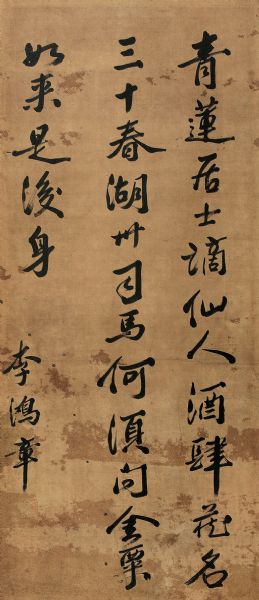 青蓮居士謫仙人酒肆藏名
三十春湖州司馬何須問金粟
如来是後身
李鴻章